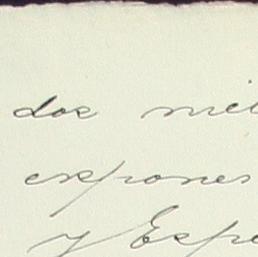 dos mil
expones
y Espe